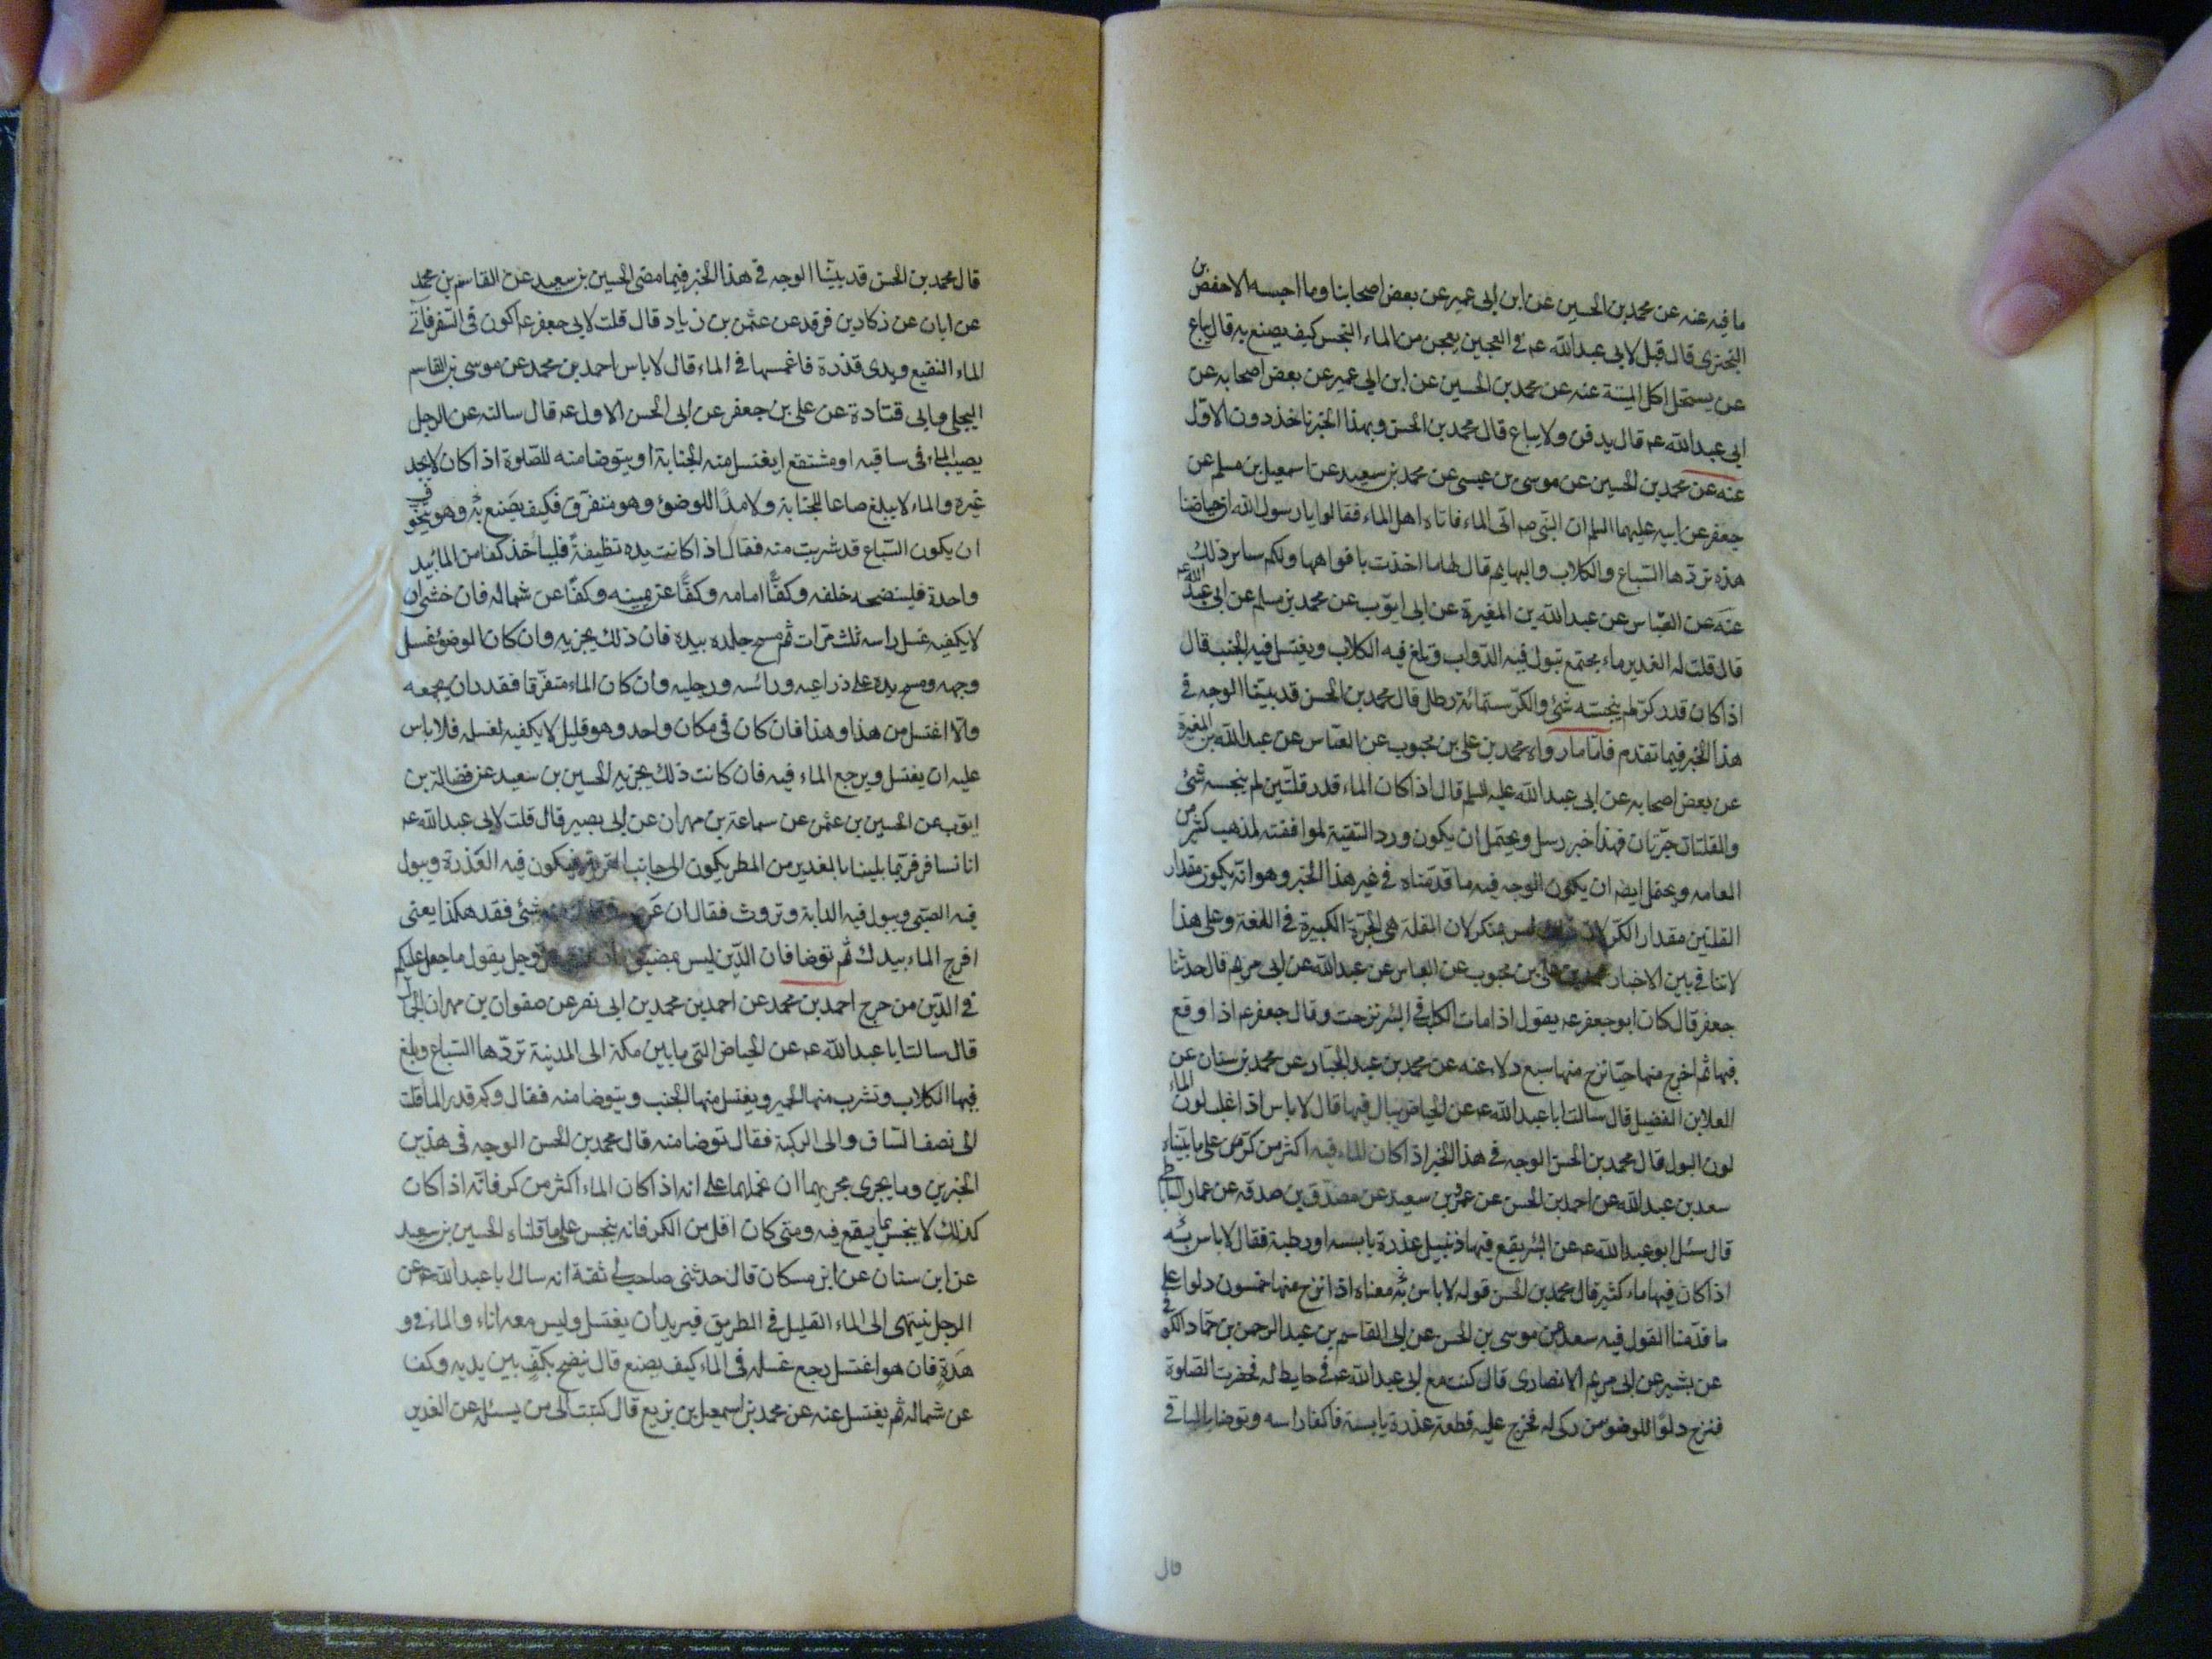 ما فيه عنه عن محمد بن الحسين عن ابن ابى عمير عن بعض اصحابنا وما احسبه الا حفص بن
البخترى قال قيل لابى عبد الله عم فى العجين يعجن من الماء النجس كيف يصنع به قال يباع
عن يستحل اكل الميتة عنه عن محمد بن الحسين عن ابن ابى عمير عن بعض اصحابه عن
ابى عبد الله عم قال يدفن ولا يباع قال محمد بن الحسن وبهذا الخبر ناخذ دون الاول
عنه عن محمد بن الحسين عن موسى بن عيسى عن محمد بن سعيد عن اسمعيل بن مسلم عن
جعفر عن ابيه عليهما السلم ان النبى صم اتى الماء فاتاه اهل الماء فقالوا يا رسول الله ان حياضنا
هذه تردها السباع والكلاب والبهايم قال لها ما اخذت بافواهها ولكم ساير ذلك
عنه عن العباس عن عبد الله بن المغيرة عن ابى ايوب عن محمد بن مسلم عن ابى عبد الله عم
قال قلت له الغدير ماء مجتمع تبول فيه الدواب وتلغ فيه الكلاب ويغتسل فيه الجنب قال
اذا كان قدر كر لم ينجسه شئ والكر ستمائة رطل قال محمد بن الحسن قد بينا الوجه فى
هذا الخبر فيما تقدم فاما ما رواه محمد بن على بن محبوب عن العباس عن عبد الله بن المغيرة
عن بعض اصحابه عن ابى عبد الله عليه السلم قال اذا كان الماء قدر قلتين لم ينجسه شئ
والقلتان جرتان فهذا خبر رسل ويحتمل ان يكون ورد التقية لموافقته لمذهب كثير من
العامه ويحتمل ايضا ان يكون الوجه فيه ما قدمناه فى غير هذا الخبر وهو انه يكون مقدار
القلتين مقدار الكر لان ليس بمنكر لان القلة هى الجرة الكبيرة فى اللغة وعلى هذا
لا تنافى بين الاخبار محمد بن على بن محبوب عن العباس عن عبد الله عن ابى مريم قال حدثنا
جعفر قال كان ابو جعفر عم يقول اذا مات الكلب فى البئر نزحت وقال جعفر عم اذا وقع
فيها ثم اخرج منها حيا نزح منها سبع دلاء عنه عن محمد بن عبد الجبار عن محمد بن سنان عن
العلا بن الفضيل قال سالت ابا عبد الله عم عن الحياض يبال فيها قال لا باس اذا غلب لون الماء
لون البول قال محمد بن الحسن الوجه فى هذا الخبر اذا كان الماء فيه اكثر من كر على ما بيناه
سعد بن عبد الله عن احمد بن الحسن عن عمرو بن سعيد عن مصدق بن صدقه عن عمار الساباطى
قال سئل ابو عبد الله عم عن البئر يقع فيها زنبيل عذرة يابسه او رطبة فقال لا باس به
اذا كان فيها ماء كثير قال محمد بن الحسن قوله لا باس به معناه اذا نزح منها خمسون دلوا على
ما قدمنا القول فيه سعد عن موسى بن الحسن عن ابى القاسم بن عبد الرحمن بن حماد الكوفى
عن بشير عن ابى مريم الانصارى قال كنت مع ابى عبد الله عم فى حايط له فحضرت الصلوة
فنزح دلوا للوضو من ركى له فخرج عليه قطعة عذرة يابسة فاكفا راسه وتوضا بالباقى
قال
قال محمد بن الحسن قد بينا الوجه فى هذا الخبر فيما مضى الحسين بن سعيد عن القاسم بن محمد
عن ابان عن زكار بن فرقد عن عثمن بن زياد قال قلت لابى جعفر عم اكون فى السفر فاتى
الماء النقيع ويدى قذرة فاغمسها فى الماء قال لا باس احمد بن محمد عن موسى بن القاسم
البجلى وابى قتادة عن على بن جعفر عن ابى الحسن الاول عم قال سالته عن الرجل
يصيب الماء فى ساقيه او مستنقع ايغتسل منه الجنابة او يتوضا منه للصلوة اذا كان لا يجد
غيره والماء لا يبلغ صاعا للجنابة ولا مدا للوضؤ وهو متفرق فكيف يصنع به وهو يتخوف
ان يكون السباع قد شربت منه فقال اذا كانت يده نظيفة فلياخذ كفا من الماء بيد
واحدة فلينضحه خلفه وكفا امامه وكفا عن يمينه وكفا عن شماله فان خشى ان
لا يكفيه غسل راسه ثلث مرات ثم مسح جلده بيده فان ذلك يجزيه وان كان الوضؤ غسل
وجهه ومسح يده على ذراعيه وراسه ورجليه وان كان الماء متفرقا فقدر ان يجمعه
والا اغتسل من هذا وهذا فان كان فى مكان واحد وهو قليل لا يكفيه لغسله فلا باس
عليه ان يغتسل ويرجع الماء فيه فان كانت ذلك يجزيه الحسين بن سعيد عن فضالة بن
ايوب عن الحسين بن عثمن عن سماعة بن مهران عن ابى بصير قال قلت لابى عبد الله عم
انا نسافر فربما بلينا بالغدير من المطر يكون الى جانب القرية فيكون فيه العذرة ويبول
فيه الصبى ويبول فيه الدابة وتروث فقال ان عرض شئ فقد هكذا يعنى
افرج الماء بيدك ثم توضا فان الدين ليس بمضيق وجل يقول ما جعل عليكم
فى الدين من حرج احمد بن محمد عن احمد بن محمد بن ابى نصر عن صفوان بن مهران الجمال
قال سالت ابا عبد الله عم عن الحياض التى ما بين مكة الى المدينة تردها السباع وتلغ
فيها الكلاب وتشرب منها الحمير ويغتسل منها الجنب ويتوضا منه فقال وكم قدر الماء قلت
الى نصف الساق والى الركبة فقال توضا منه قال محمد بن الحسن الوجه فى هذين
الخبرين وما يجرى مجريهما ان نحملهما على انه اذا كان الماء اكثر من كر فانه اذا كان
كذلك لا ينجس بما يقع فيه ومتى كان اقل من الكر فانه ينجس على ما قلناه الحسين بن سعيد
عن ابن سنان عن ابن مسكان قال حدثنى صاحب لى ثقة انه سال ابا عبد الله عم عن
الرجل ينتهى الى الماء القليل فى الطريق فيريد ان يغتسل وليس معه اناء والماء فى و
هدة فان هو اغتسل رجع غسله فى الماء كيف يصنع قال ينضح بكف بين يديه وكفا
عن شماله ثم يغتسل عنه عن محمد بن اسمعيل بن بزيع قال كتبت الى من يسئله عن الغدير